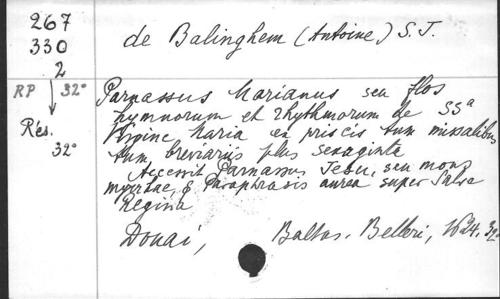 267
330
2
RP 32°
Rés.
32°
de Balinghem (Antoine) S.J.
Parnassus Marianus seu flos
hymnorum et rhythmorum de SSª
Virgine Maria ex priscis tum missalibus
tum breviariis plus sexaginta
Accessit Parnassus Jesu, seu mons
myrrhae, & Paraphrasis aurea super Salve
Regina
Douai, Baltas. Belleri, 1624, 32°